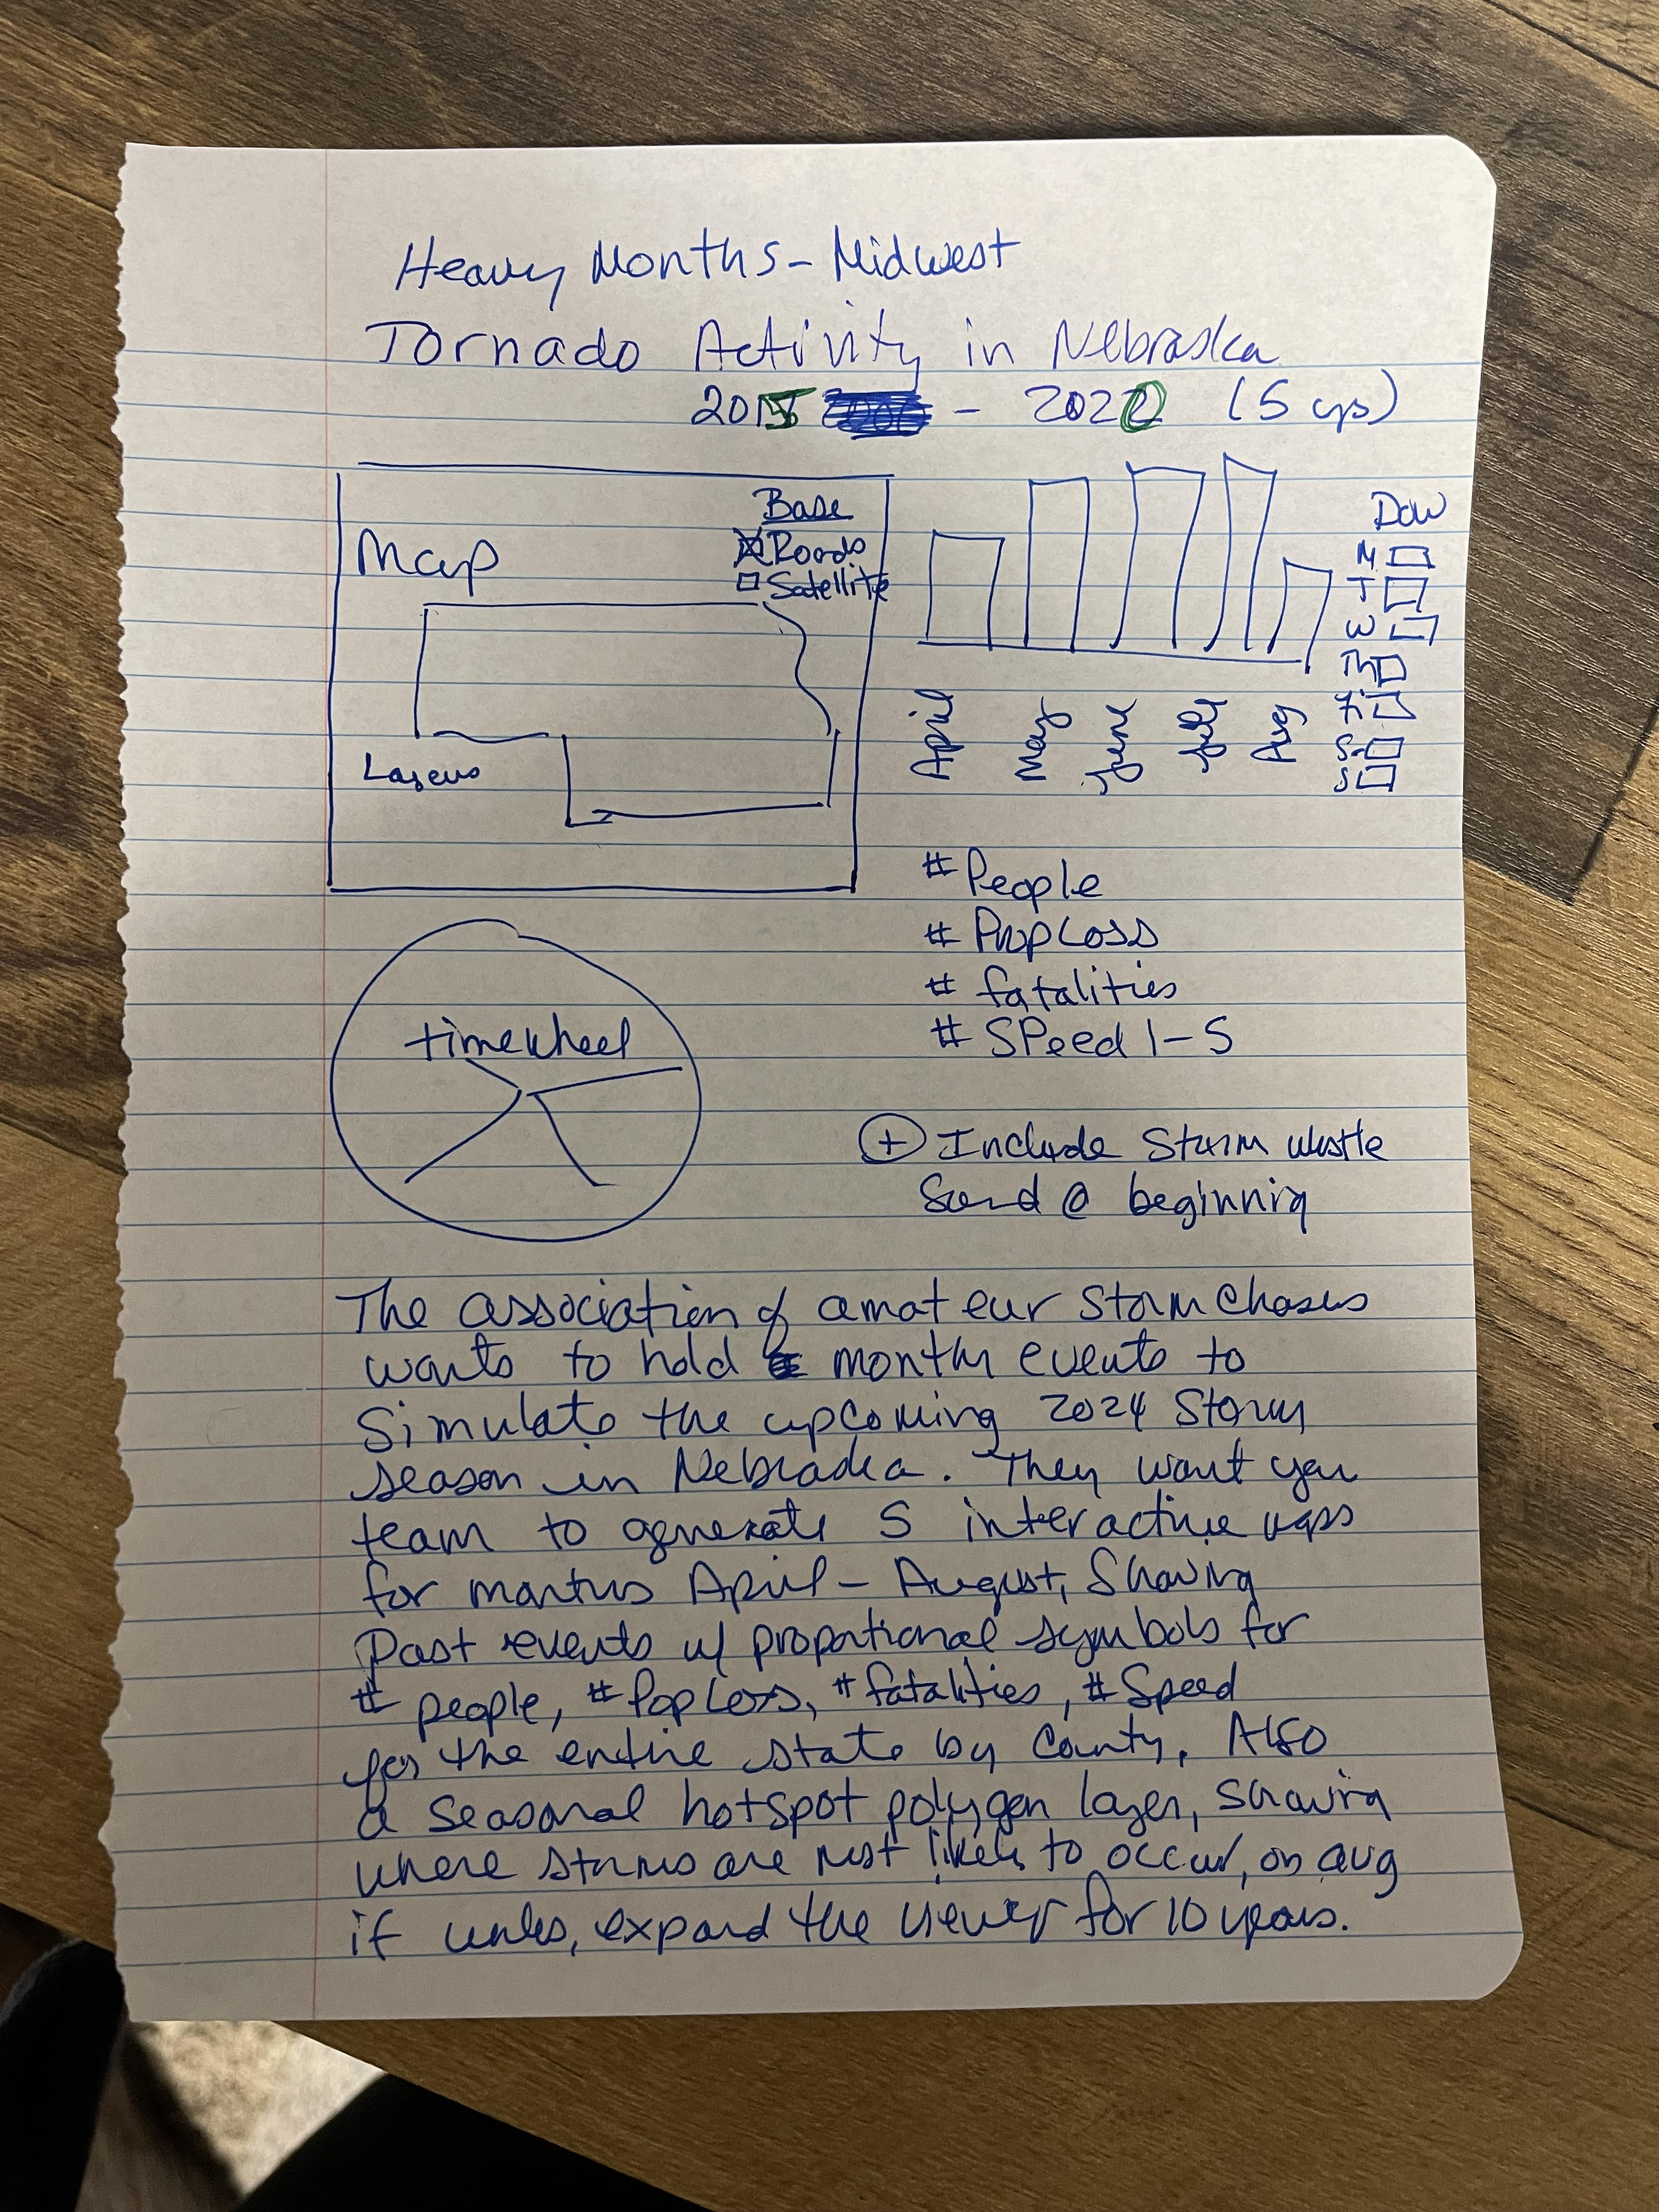 Heavy Months - Midwest
Tornado Activity in Nebraska
2015 - 2020 (5 yrs)
Map
Base
Roads
Satellite
Layers
April
May
June
July
Aug
DOW
M
T
W
Th
F
S
S
# People
# Prop Loss
# fatalities
# Speed 1-5
timewheel
+ Include Storm whistle
Sound @ beginning
The association of amateur Storm Chasers
wants to hold month events to
Simulate the upcoming 2024 Storm
season in Nebraska. They want you
team to generate 5 interactive maps
for months April - August, Showing
Past events w/ proportional symbols for
# people, # Pop Loss, # fatalities, # Speed
for the entire state by County. Also
a seasonal hotspot polygon layer, showing
where storms are most likely to occur, on avg
if unless, expand the viewer for 10 years.